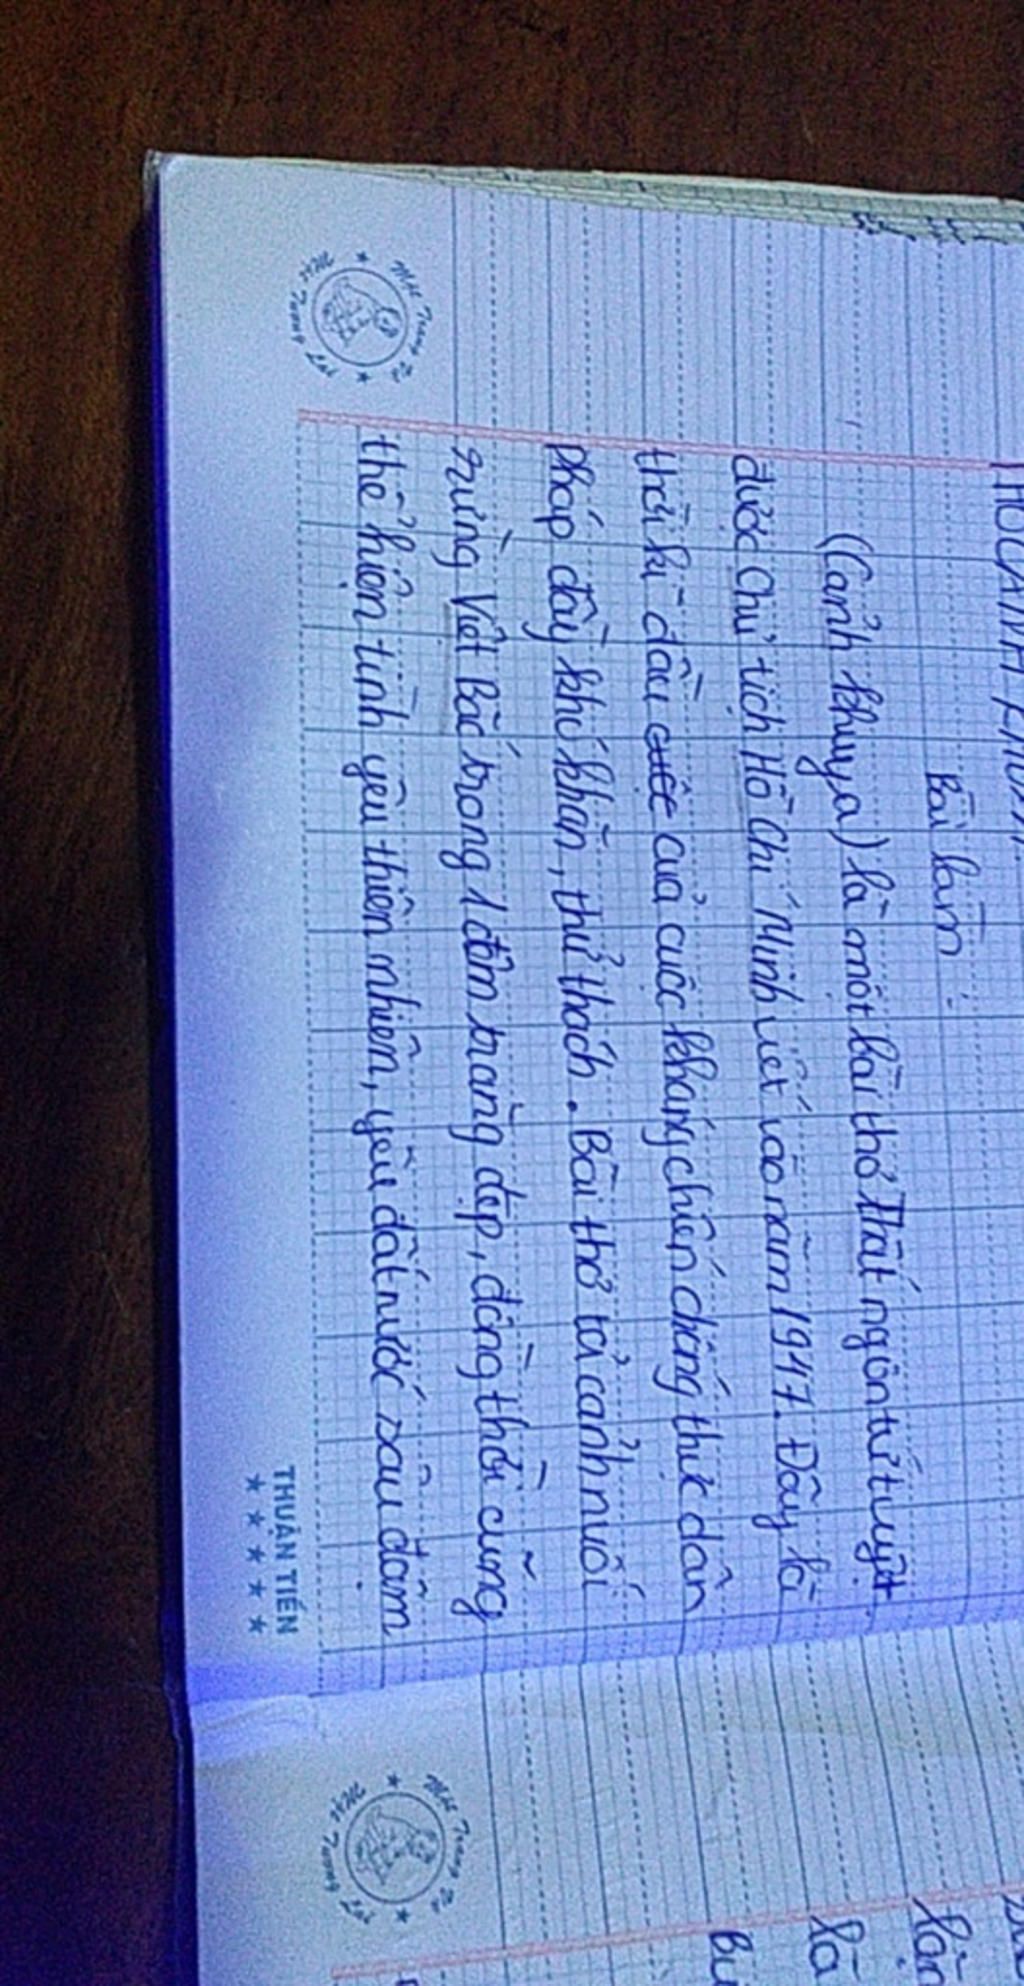 Bài làm:
(Cảnh khuya) là một bài thơ Thất ngôn tứ tuyệt
được Chủ tịch Hồ Chí Minh viết vào năm 1947. Đây là
thời kì đầu của cuộc kháng chiến chống thực dân
Pháp đầy khó khăn, thử thách. Bài thơ tả cảnh núi
rừng Việt Bắc trong 1 đêm trăng đẹp, đồng thời cũng
thể hiện tình yêu thiên nhiên, yêu đất nước sâu đậm
THUẬN TIẾN
là